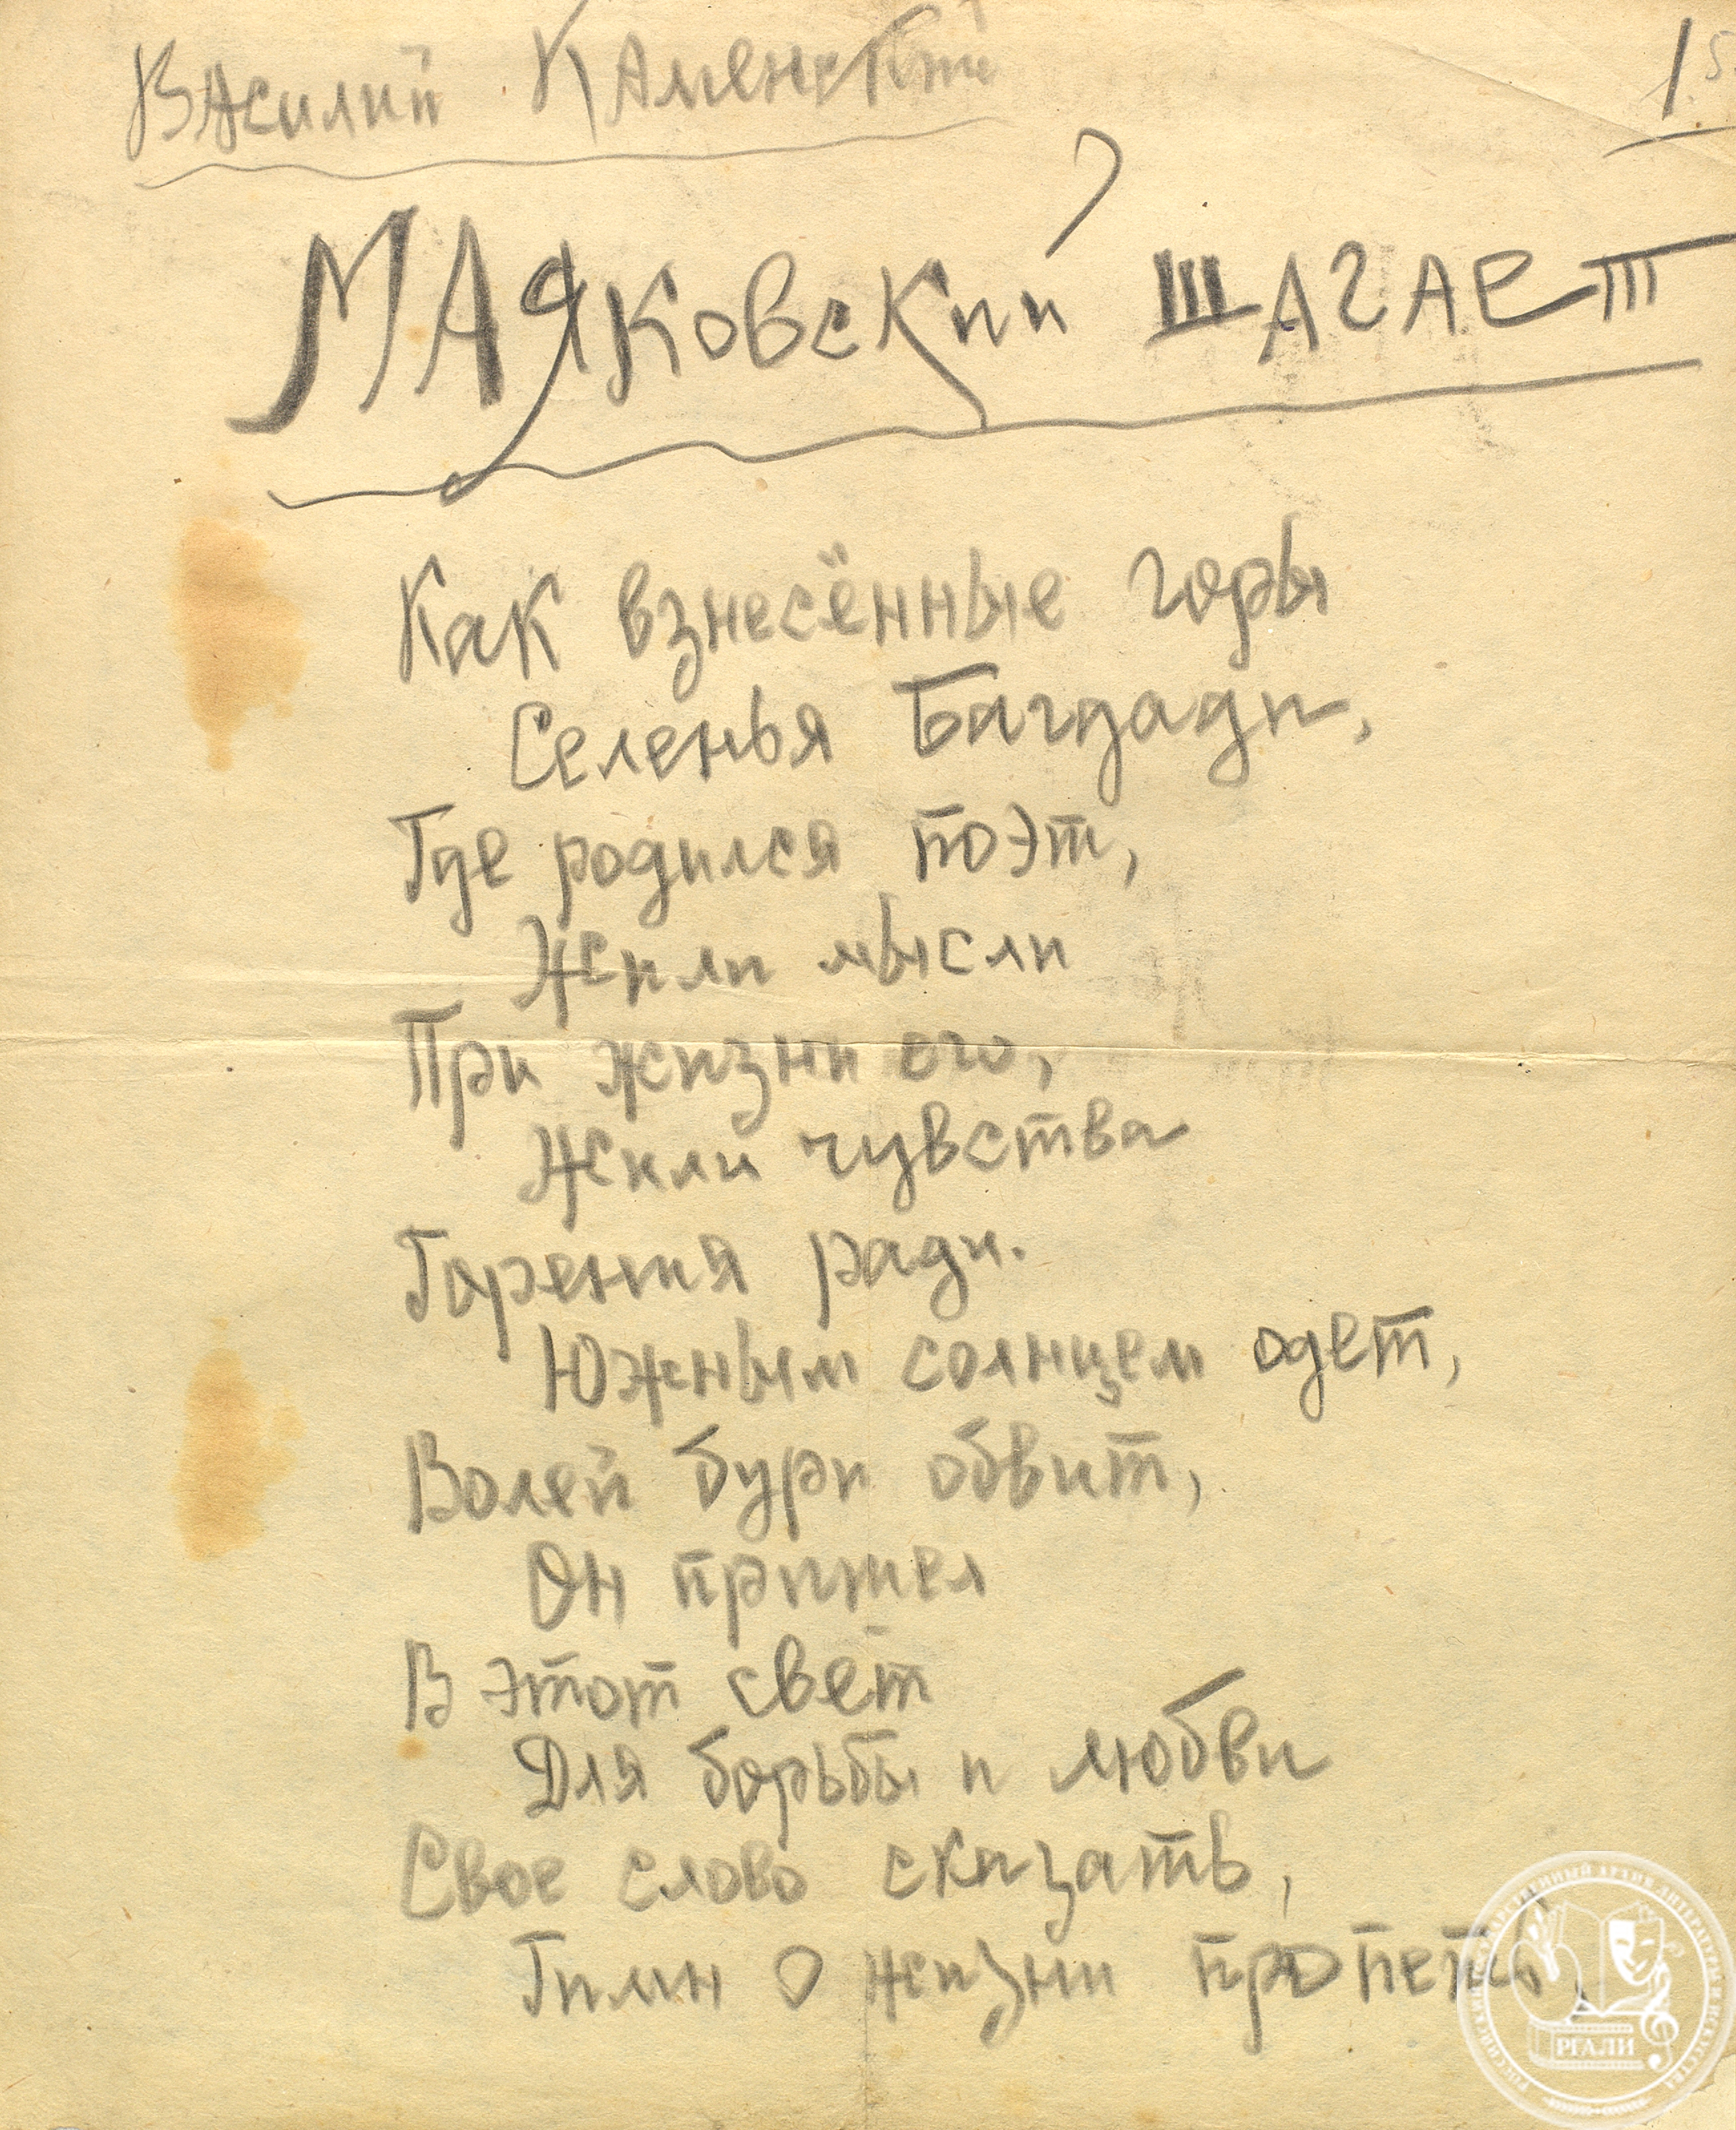 Василий Каменский
1
МАяковский шагает
Как взнесённые горы
Селенья Багдади,
Где родился поэт,
Жили мысли
При жизни его,
Жили чувства
Горения ради.
Южным солнцем одет,
Волей бури обвит,
Он пришел
В этот свет
Для борьбы и любви
Свое слово сказать,
Гимн о жизни пропеть,
РОССИЙСКИЙ ГОСУДАРСТВЕННЫЙ АРХИВ ЛИТЕРАТУРЫ И ИСКУССТВА
РГАЛИ